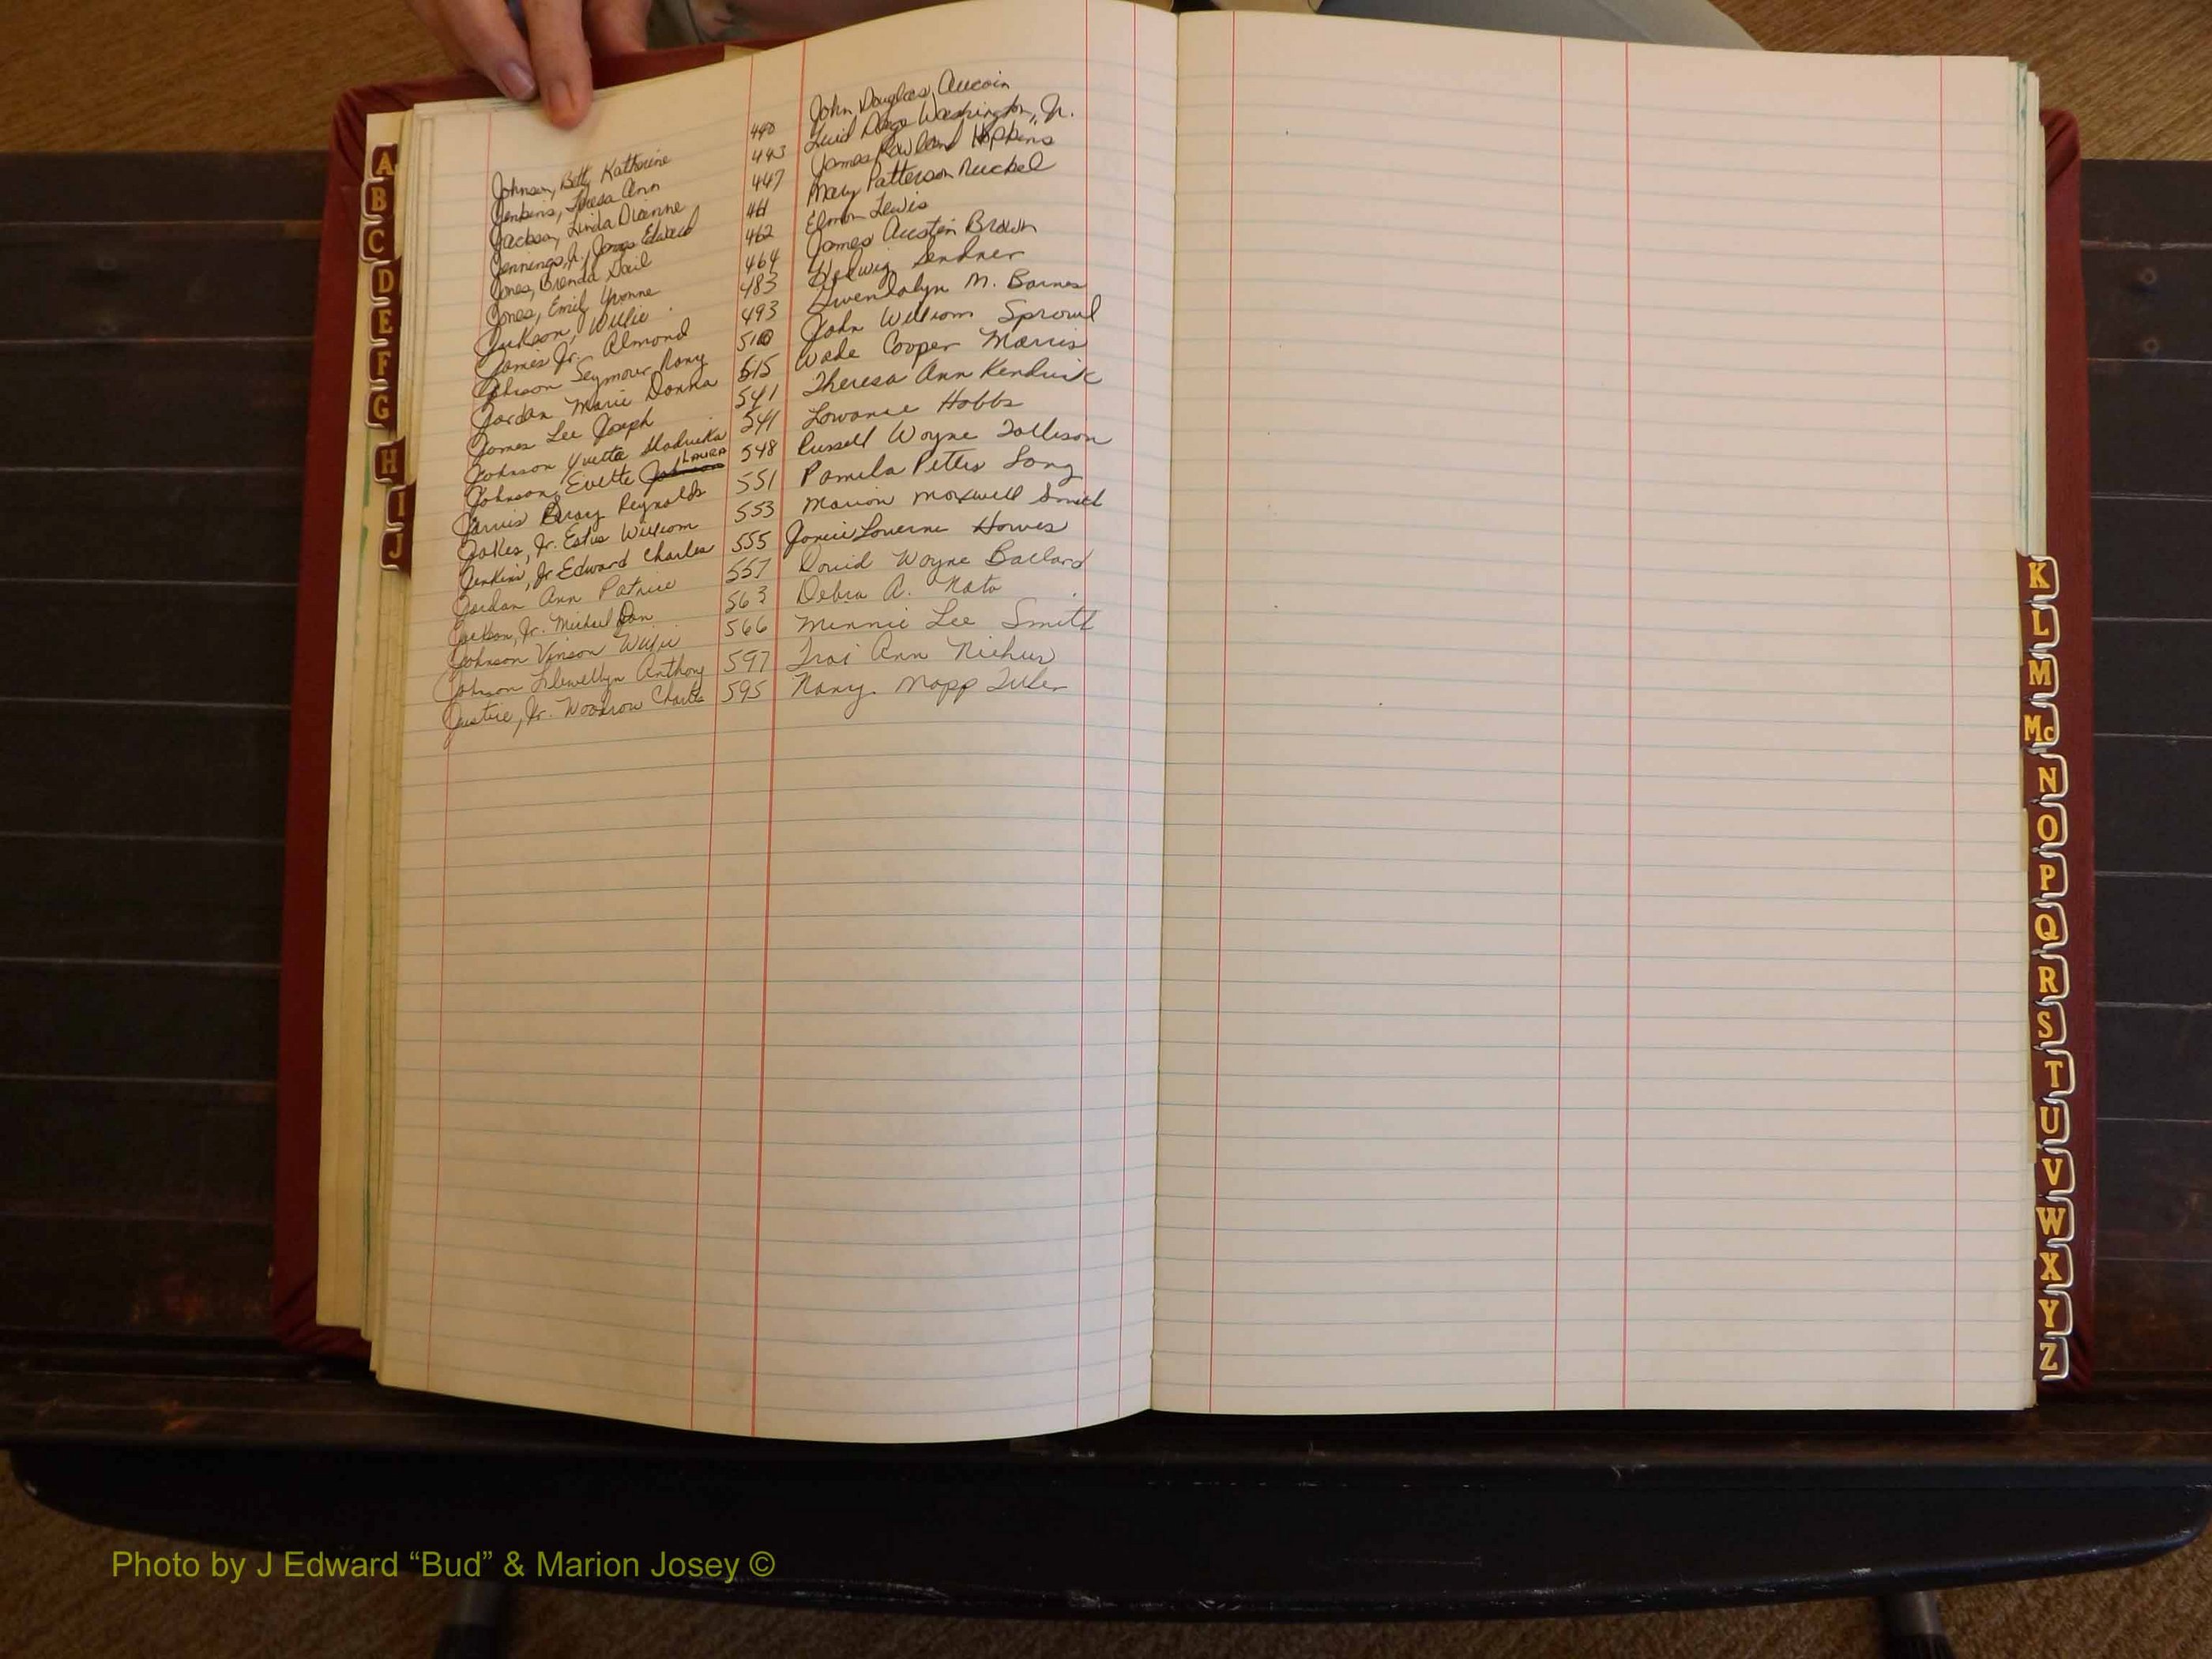 Johnson, Betty Katherine 440 John Douglas Aucoin
Jenkins, Teresa Ann 443 Washington, Jr.
Jackson, Linda Dianne 447 James Rowland Hopkins
Jennings, Jr., James Edward 461 Mary Patterson Nuckel
Jones, Brenda Gail 462 Elmon Lewis
Jones, Emily Yvonne 464 James Austin Brown
Jackson, Willie 483 Hedwig Lendner
James Jr. Almond 493 Gwendolyn M. Barnes
Johnson Seymour 510 John William Sprowl
Jordan Marie Donna 515 Wade Cooper Morris
James Lee Joseph 541 Theresa Ann Kendrick
Johnson Yvette 541 Lowance Hobbs
Johnson, Evette LAURA 548 Russell Wayne Tollison
Jarvis Reynolds 551 Pamela Peters Long
Jr. Estus William 553 Marion Maxwell Smith
Jenkins, Jr Edward Charles 555 Janice Laverne Howes
Jordan Ann Patrice 557 David Wayne Ballard
Jackson, Jr. Michael Don 563 Debra A. Nato
Johnson Vinson Willie 566 Minnie Lee Smith
Johnson Llewellyn Anthony 597 Traci Ann Niehus
Justice, Jr. Woodrow Charles 595 Nancy Mapp Tuller
A
B
C
D
E
F
G
H
I
J
K
L
M
Mc
N
O
P
Q
R
S
T
U
V
W
X
Y
Z
Photo by J Edward “Bud” & Marion Josey ©